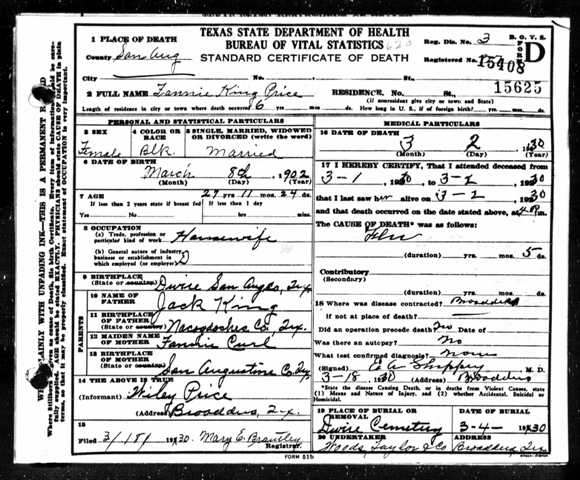 TEXAS STATE DEPARTMENT OF HEALTH
BUREAU OF VITAL STATISTICS
STANDARD CERTIFICATE OF DEATH
Reg. Dis. No. 3
B. O. V. S.
FORM D
Registered No. 15408
15625
1 PLACE OF DEATH
County San Aug
City No. St.
2 FULL NAME Fannie King Price RESIDENCE. No. St.,
(If nonresident give city or town and State)
Length of residence in city or town where death occurred 6 yrs. mos. ds. How long in U. S., if of foreign birth? yrs. mos. ds.
PERSONAL AND STATISTICAL PARTICULARS
3 SEX Female
4 COLOR OR RACE Blk.
5 SINGLE, MARRIED, WIDOWED OR DIVORCED (write the word) Married
6 DATE OF BIRTH
March 8th 1902
(Month) (Day) (Year)
7 AGE 27 yrs 11 mos. 24 ds.
If less than 2 years state if breast fed If less than 1 day
Yes No hrs. min.
8 OCCUPATION
(a) Trade, profession or particular kind of work Housewife
(b) General nature of industry, business or establishment in which employed (or employer)
9 BIRTHPLACE
(State or country) San Aug Co, Tex
10 NAME OF FATHER Jack King
11 BIRTHPLACE OF FATHER
(State or country) Nacogdoches Co. Tex.
12 MAIDEN NAME OF MOTHER Fannie Curl
13 BIRTHPLACE OF MOTHER
(State or country) San Augustine Co. Tex
PARENTS
14 THE ABOVE IS TRUE
(Informant) Wiley Price
(Address) Broaddus, Tex.
15
Filed 3/18/1930. Mary E. Brantley
Registrar.
MEDICAL PARTICULARS
16 DATE OF DEATH
3 2 1930
(Month) (Day) (Year)
17 I HEREBY CERTIFY, That I attended deceased
from 3-1 1930 to 3-2 1930
that I last saw her alive on 3-2 1930
and that death occurred on the date stated above, at M.
The CAUSE OF DEATH* was as follows:
Flu
(duration) yrs. mos. 5 ds.
Contributory
(Secondary)
(duration) yrs. mos. ds.
18 Where was disease contracted? Broaddus
if not at place of death?
Did an operation precede death? No
Was there an autopsy? No
What test confirmed diagnosis? None
(Signed) M. D.
3-18, 1930 Broaddus
*State the disease Causing Death, or in deaths from Violent Causes, state (1) Means and Nature of Injury, and (2) whether Accidental, Suicidal or Homicidal.
19 PLACE OF BURIAL OR REMOVAL Cemetery
DATE OF BURIAL 3-4- 1930
20 UNDERTAKER Woods, Taylor & Co
ADDRESS Broaddus, Tex
FORM 51b